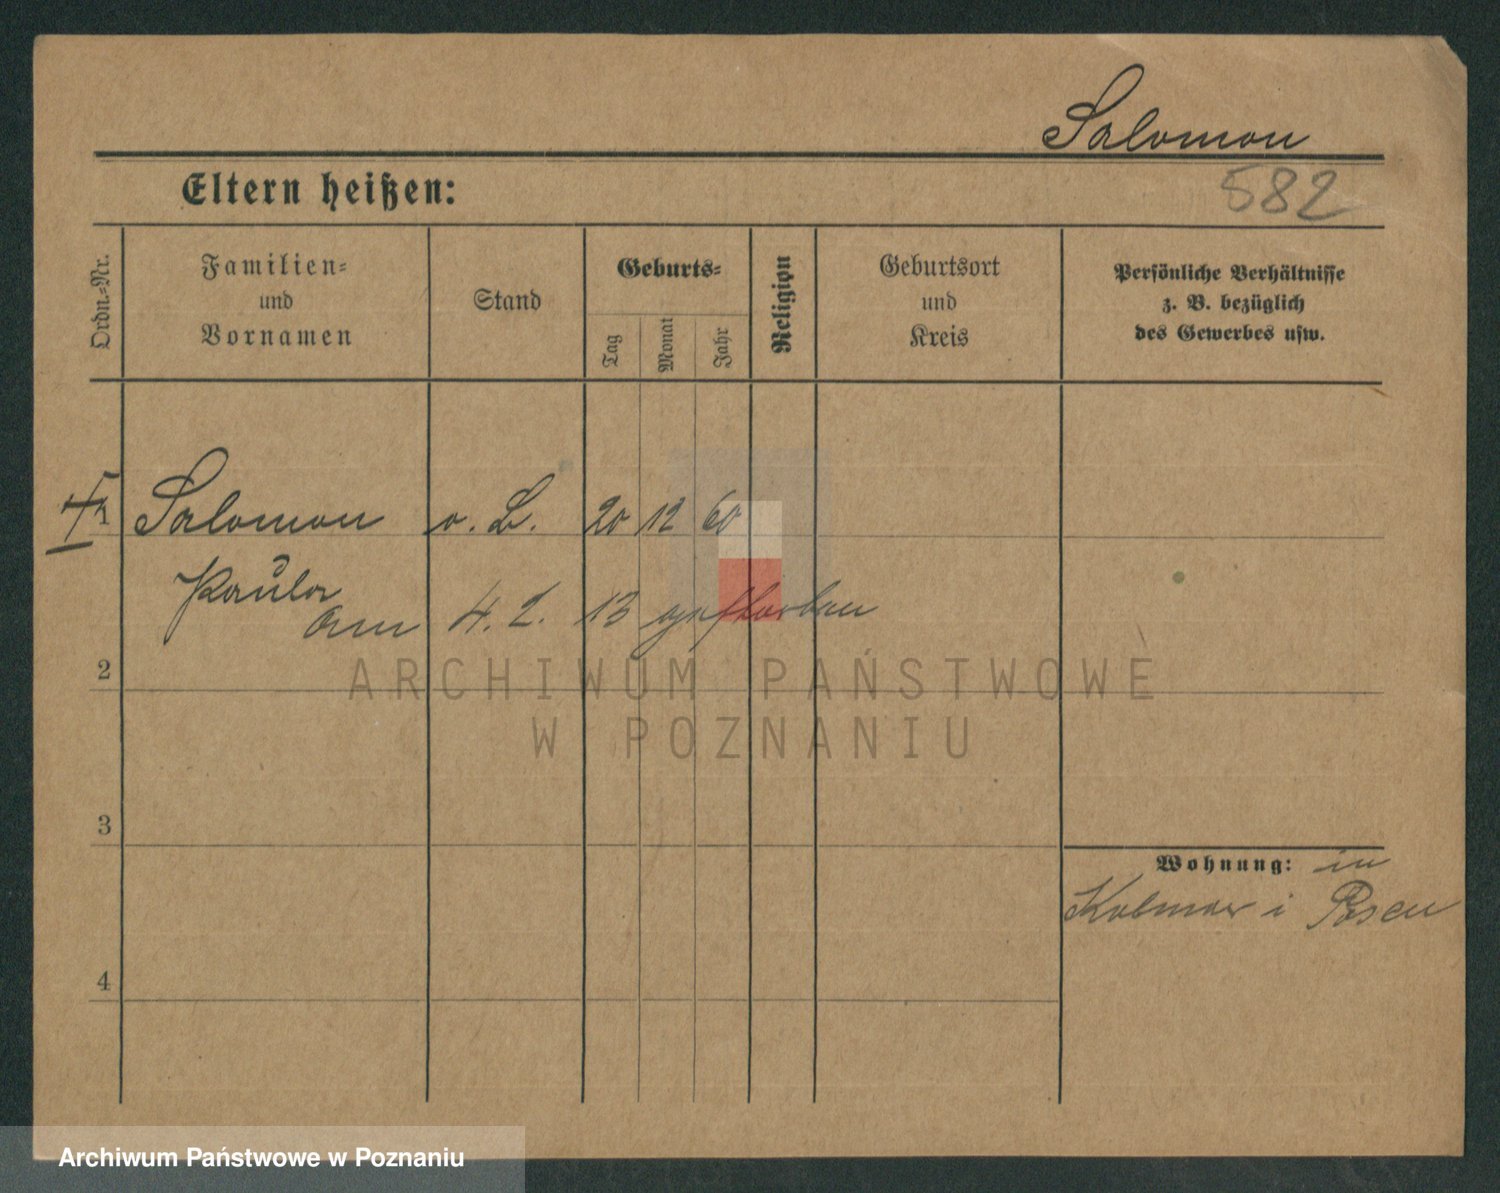 Salomon
Eltern heißen:
582
Ordn.-Nr.
Familien-
und
Vornamen
Stand
Geburts-
Tag
Monat
Jahr
Religion
Geburtsort
und
Kreis
Persönliche Verhältnisse
z. B. bezüglich
des Gewerbes usw.
Salomon o. B. 20 12 60
Paula
am 4. 2. 13 gestorben
ARCHIWUM PAŃSTWOWE
W POZNANIU
2
3
Wohnung: in
Kolmar i Posen
4
Archiwum Państwowe w Poznaniu